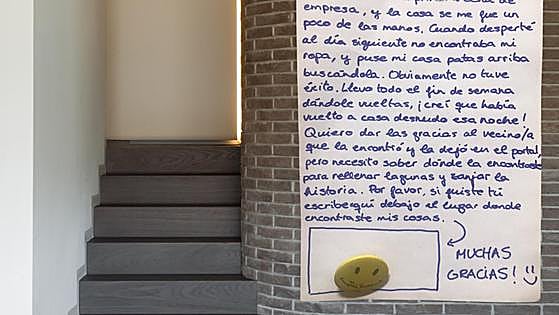 empresa, y la cosa se me fue un
poco de las manos. Cuando desperté
al día siguiente no encontraba mi
ropa, y puse mi casa patas arriba
buscándola. Obviamente no tuve
éxito. Llevo todo el fin de semana
dándole vueltas, ¡creí que había
vuelto a casa desnudo esa noche!
Quiero dar las gracias al vecino/a
que la encontró y la dejó en el portal,
pero necesito saber dónde la encontraste
para rellenar lagunas y zanjar la
historia. Por favor, si fuiste tú
escribe aquí debajo el lugar donde
encontraste mis cosas.
MUCHAS
GRACIAS! :)